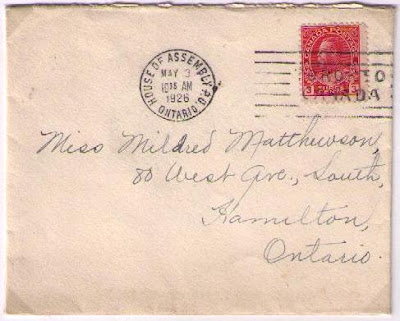 HOUSE OF ASSEMBLY P.O.
MAY 3
10 15 AM
1926
ONTARIO
CANADA POSTAGE
3 3
Miss Mildred Matthewson,
80 West Ave., South,
Hamilton,
Ontario.